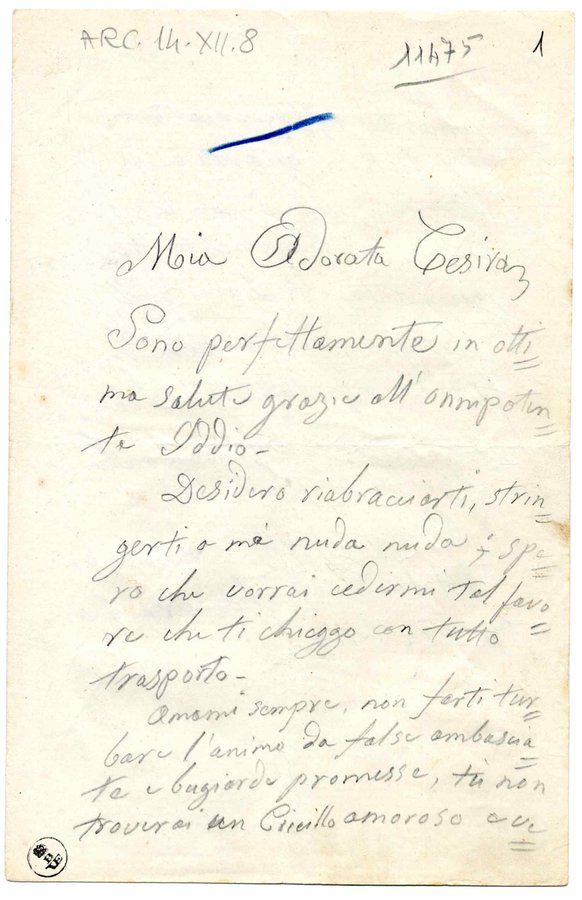 ARC. 14. XII. 8
11475
1
Mia Adorata Tesira
Sono perfettamente in otti=
ma salute grazie all'onnipoten=
te Iddio-
Desidero riabracciarti, strin=
gerti a me nuda nuda; spe=
ro che vorrai cedirmi tal favo=
re che ti chieggo con tutto
trasporto-
Amami sempre, non farti tur=
bare l'animo da false ambascia=
te e bugiarde promesse, tù non
troverai un Ciccillo amoroso e ve=